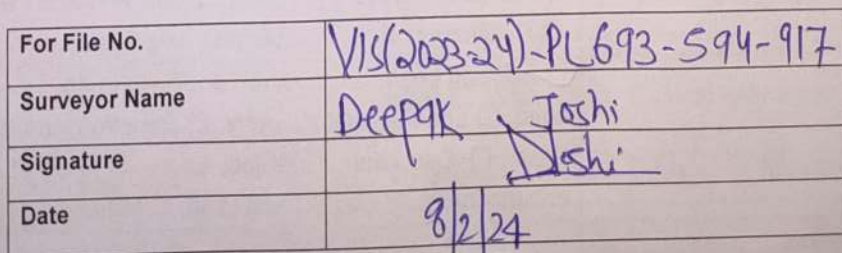 For File No. VIS(2023-24)-PL693-594-917
Surveyor Name Deepak Joshi
Signature DJoshi
Date 8/2/24